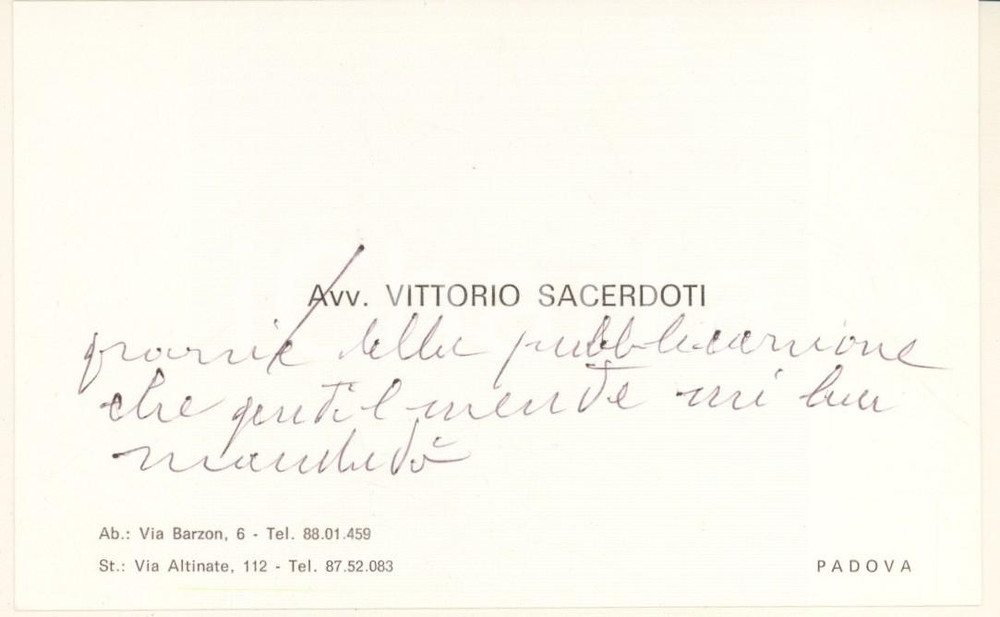 Avv. VITTORIO SACERDOTI
grazie della pubblicazione
che gentilmente mi ha
mandato
Ab.: Via Barzon, 6 - Tel. 88.01.459
St.: Via Altinate, 112 - Tel. 87.52.083
PADOVA